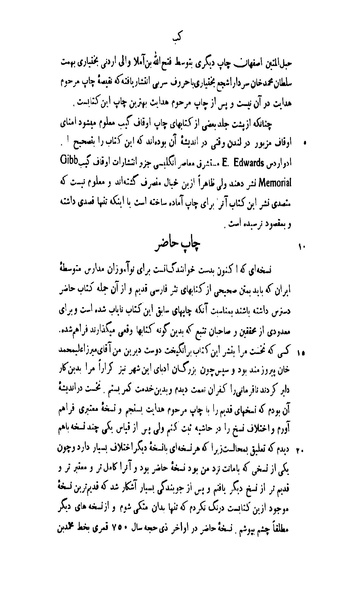 کب
حبل‌المتین اصفهان چاپ دیگری بتوسط فتح‌الله بن‌آملا والی اردنی بختیاری بهمت
سلطان محمدخان سردار اشجع بختیاری با حروف سربی انتشار یافته که نقیصهٔ چاپ مرحوم
هدایت در آن نیست و پس از چاپ مرحوم هدایت بهترین چاپ این کتابست.
چنانکه از پشت جلد بعضی از کتابهای چاپ اوقاف گیب معلوم میشود امنای
اوقاف مزبور در لندن وقتی در اندیشهٔ آن بوده‌اند که این کتاب را بتصحیح ا.
ادواردس E. Edwards مستشرق معاصر انگلیسی جزو انتشارات اوقاف گیب Gibb
Memorial نشر دهند ولی ظاهراً از بن خیال منصرف گشته‌اند و معلوم نیست که
متصدی نشر این کتاب آنرا برای چاپ آماده ساخته است یا اینکه تنها قصدی داشته
و بمقصود نرسیده است.
۱۰ چاپ حاضر
نسخه‌ای که اکنون بدست خوانندگانست برای نوآموزان مدارس متوسطهٔ
ایران که باید بمتن صحیحی از کتابهای نثر فارسی قدیم و از آن جمله کتاب حاضر
دسترس داشته باشند بمناسبت آنکه چاپهای سابق این کتاب نایاب شده است و برای
معدودی از محققین و صاحبان تتبع که بدین‌گونه کتابها وقعی میگذارند فراهم شده.
۱۵ کسی که نخست مرا بنشر این کتاب برانگیخت دوست دیرین من آقای میرزا علیمحمد
خان پیروزمند بود و سپس چون بزرگان ادبای این شهر نیز کراراً مرا بدین کار
دلیر کردند نافرمانی را کفران نعمت دیدم و بدین خدمت کمر بستم. نخست در اندیشهٔ
آن بودم که نسخهای قدیم را با چاپ مرحوم هدایت بسنجم و نسخهٔ معتبری فراهم
آورم و اختلاف نسخ را در حاشیه ثبت کنم ولی پس از قیاس یکی چند نسخه باهم
۲۰ دیدم که تعلیق بمحالست زیرا که هر نسخه‌ای با نسخهٔ دیگر اختلاف بسیار دارد و چون
یکی از نسخی که بامانت نزد من بود نسخهٔ حاضر بود و آنرا کامل‌تر و معتبرتر و
قدیم‌تر از نسخ دیگر یافتم و پس از جویندگی بسیار آشکار شد که قدیم‌ترین نسخهٔ
موجود ازین کتابست درنگ نکردم که تنها بدان متکی شوم و از نسخه‌های دیگر
مطلقاً چشم بپوشم. نسخهٔ حاضر در اواخر ذی‌حجهٔ سال ۷۵۰ قمری بخط محمدبن